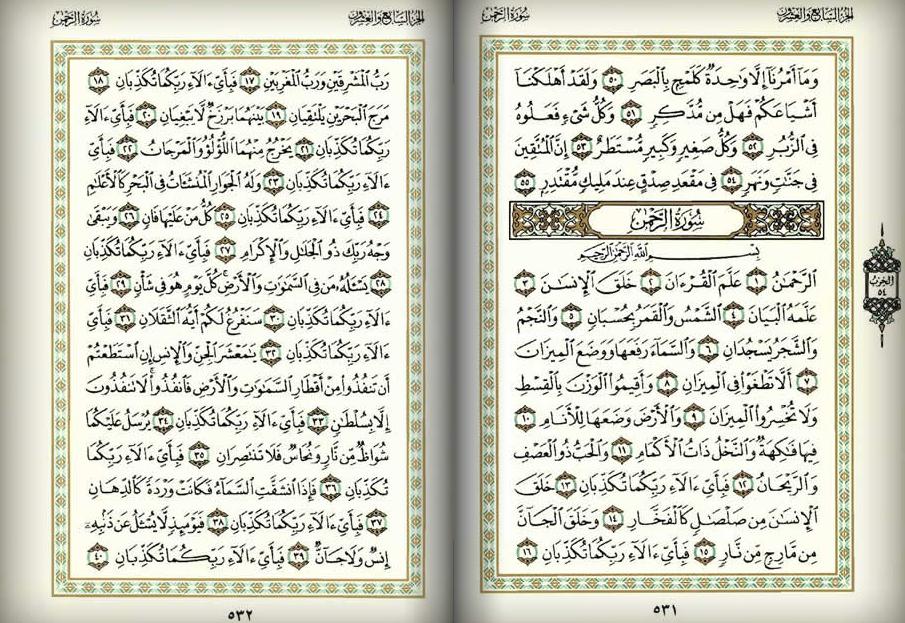 الجزء السابع والعشرون
سورة الرحمن
وَمَا أَمْرُنَا إِلَّا وَاحِدَةٌ كَلَمْحٍ بِالْبَصَرِ ٥٠ وَلَقَدْ أَهْلَكْنَا
أَشْيَاعَكُمْ فَهَلْ مِن مُّدَّكِرٍ ٥١ وَكُلُّ شَيْءٍ فَعَلُوهُ
فِي الزُّبُرِ ٥٢ وَكُلُّ صَغِيرٍ وَكَبِيرٍ مُّسْتَطَرٌ ٥٣ إِنَّ الْمُتَّقِينَ
فِي جَنَّاتٍ وَنَهَرٍ ٥٤ فِي مَقْعَدِ صِدْقٍ عِندَ مَلِيكٍ مُّقْتَدِرٍ ٥٥
سُورَةُ الرَّحْمَٰن
بِسْمِ اللَّهِ الرَّحْمَٰنِ الرَّحِيمِ
الرَّحْمَٰنُ ١ عَلَّمَ الْقُرْءَانَ ٢ خَلَقَ الْإِنسَٰنَ ٣
عَلَّمَهُ الْبَيَانَ ٤ الشَّمْسُ وَالْقَمَرُ بِحُسْبَانٍ ٥ وَالنَّجْمُ
وَالشَّجَرُ يَسْجُدَانِ ٦ وَالسَّمَاءَ رَفَعَهَا وَوَضَعَ الْمِيزَانَ
٧ أَلَّا تَطْغَوْا فِي الْمِيزَانِ ٨ وَأَقِيمُوا الْوَزْنَ بِالْقِسْطِ
وَلَا تُخْسِرُوا الْمِيزَانَ ٩ وَالْأَرْضَ وَضَعَهَا لِلْأَنَامِ ١٠
فِيهَا فَٰكِهَةٌ وَالنَّخْلُ ذَاتُ الْأَكْمَامِ ١١ وَالْحَبُّ ذُو الْعَصْفِ
وَالرَّيْحَانُ ١٢ فَبِأَيِّ ءَالَاءِ رَبِّكُمَا تُكَذِّبَانِ ١٣ خَلَقَ
الْإِنسَٰنَ مِن صَلْصَٰلٍ كَالْفَخَّارِ ١٤ وَخَلَقَ الْجَانَّ
مِن مَّارِجٍ مِّن نَّارٍ ١٥ فَبِأَيِّ ءَالَاءِ رَبِّكُمَا تُكَذِّبَانِ ١٦
الحزب
٥٤
٥٣١
الجزء السابع والعشرون
سورة الرحمن
رَبُّ الْمَشْرِقَيْنِ وَرَبُّ الْمَغْرِبَيْنِ ١٧ فَبِأَيِّ ءَالَاءِ رَبِّكُمَا تُكَذِّبَانِ ١٨
مَرَجَ الْبَحْرَيْنِ يَلْتَقِيَانِ ١٩ بَيْنَهُمَا بَرْزَخٌ لَّا يَبْغِيَانِ ٢٠ فَبِأَيِّ ءَالَاءِ
رَبِّكُمَا تُكَذِّبَانِ ٢١ يَخْرُجُ مِنْهُمَا اللُّؤْلُؤُ وَالْمَرْجَانُ ٢٢ فَبِأَيِّ
ءَالَاءِ رَبِّكُمَا تُكَذِّبَانِ ٢٣ وَلَهُ الْجَوَارِ الْمُنشَئَاتُ فِي الْبَحْرِ كَالْأَعْلَٰمِ
٢٤ فَبِأَيِّ ءَالَاءِ رَبِّكُمَا تُكَذِّبَانِ ٢٥ كُلُّ مَنْ عَلَيْهَا فَانٍ ٢٦ وَيَبْقَىٰ
وَجْهُ رَبِّكَ ذُو الْجَلَٰلِ وَالْإِكْرَامِ ٢٧ فَبِأَيِّ ءَالَاءِ رَبِّكُمَا تُكَذِّبَانِ
٢٨ يَسْـَٔلُهُ مَن فِي السَّمَٰوَٰتِ وَالْأَرْضِ كُلَّ يَوْمٍ هُوَ فِي شَأْنٍ ٢٩ فَبِأَيِّ
ءَالَاءِ رَبِّكُمَا تُكَذِّبَانِ ٣٠ سَنَفْرُغُ لَكُمْ أَيُّهَ الثَّقَلَانِ ٣١ فَبِأَيِّ
ءَالَاءِ رَبِّكُمَا تُكَذِّبَانِ ٣٢ يَٰمَعْشَرَ الْجِنِّ وَالْإِنسِ إِنِ اسْتَطَعْتُمْ
أَن تَنفُذُوا مِنْ أَقْطَارِ السَّمَٰوَٰتِ وَالْأَرْضِ فَانفُذُوا لَا تَنفُذُونَ
إِلَّا بِسُلْطَٰنٍ ٣٣ فَبِأَيِّ ءَالَاءِ رَبِّكُمَا تُكَذِّبَانِ ٣٤ يُرْسَلُ عَلَيْكُمَا
شُوَاظٌ مِّن نَّارٍ وَنُحَاسٌ فَلَا تَنتَصِرَانِ ٣٥ فَبِأَيِّ ءَالَاءِ رَبِّكُمَا
تُكَذِّبَانِ ٣٦ فَإِذَا انشَقَّتِ السَّمَاءُ فَكَانَتْ وَرْدَةً كَالدِّهَانِ
٣٧ فَبِأَيِّ ءَالَاءِ رَبِّكُمَا تُكَذِّبَانِ ٣٨ فَيَوْمَئِذٍ لَّا يُسْـَٔلُ عَن ذَنبِهِ
إِنسٌ وَلَا جَانٌّ ٣٩ فَبِأَيِّ ءَالَاءِ رَبِّكُمَا تُكَذِّبَانِ ٤٠
٥٣٢